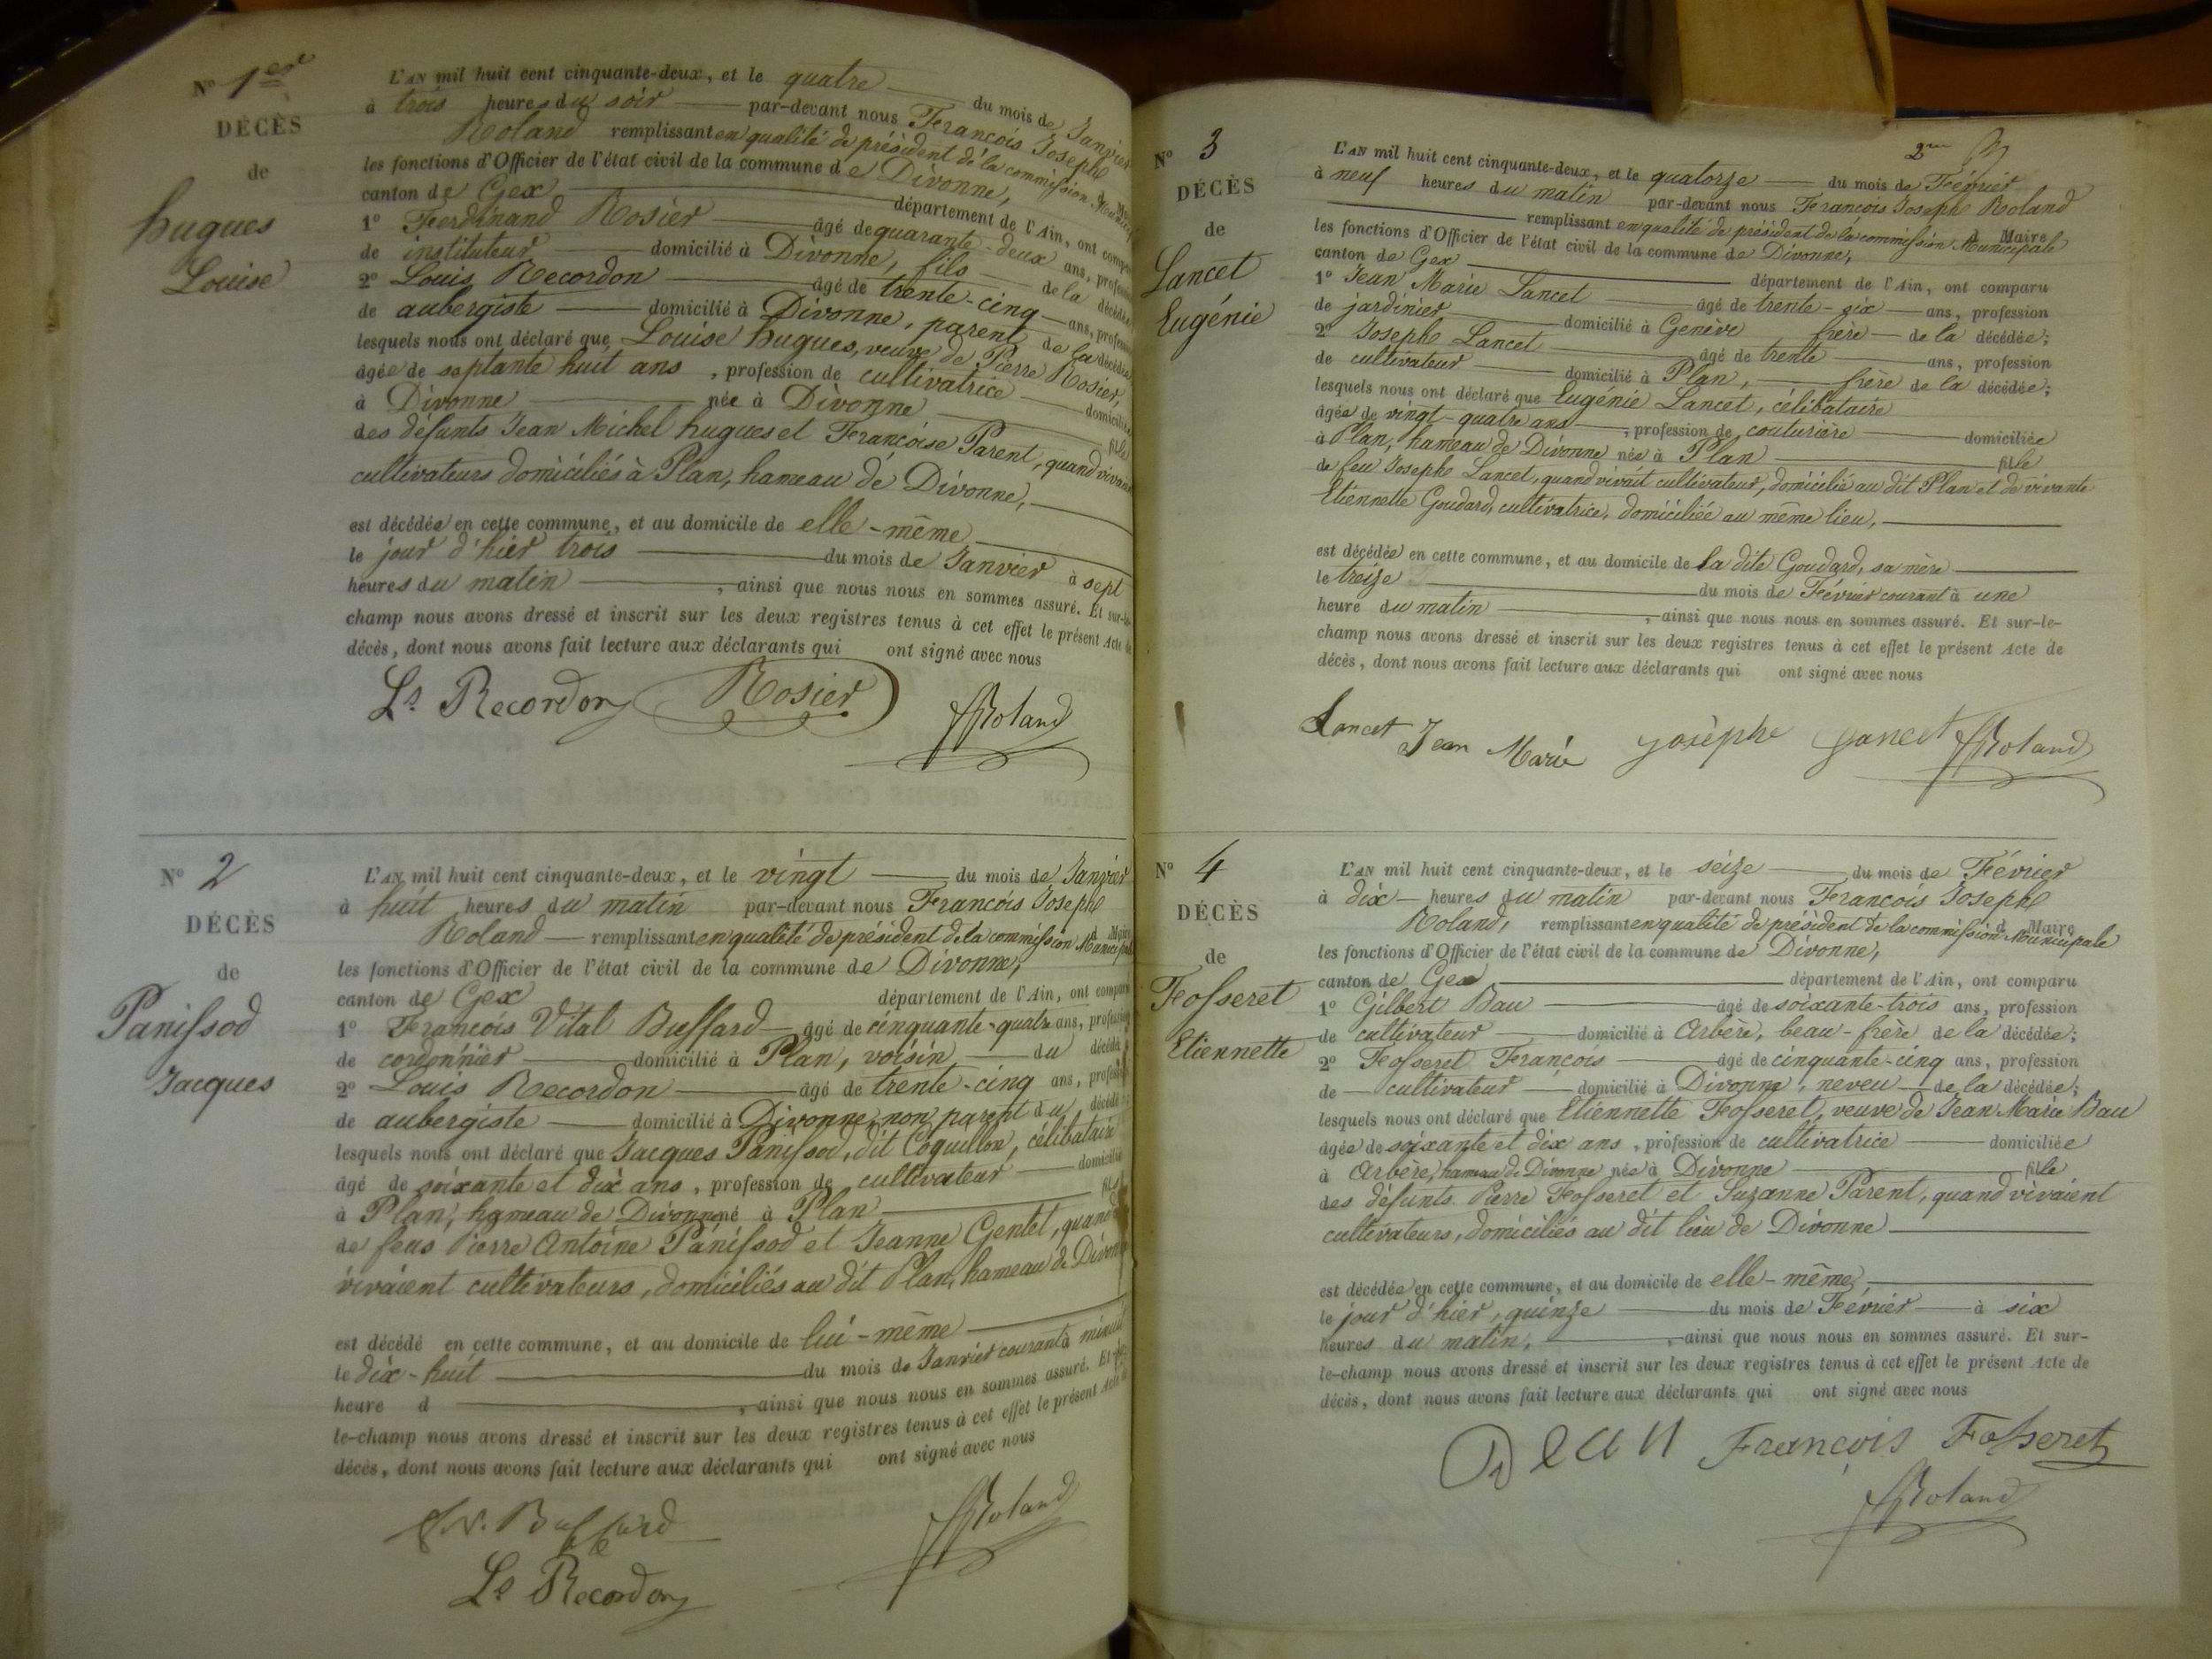 N° 1er
DÉCÈS
de
hugues
Louise
L'AN mil huit cent cinquante-deux, et le quatre du mois de Janvier
à trois heures du soir par-devant nous François Joseph
Roland remplissant en qualité de président de la commission Municipale
les fonctions d'Officier de l'état civil de la commune de Divonne,
canton de Gex département de l'Ain, ont comparu
1° Ferdinand Rosier âgé de quarante-deux ans, profession
de instituteur domicilié à Divonne, fils de la décédée
2° Louis Recordon âgé de trente-cinq ans, profession
de aubergiste domicilié à Divonne, parent de la décédée
lesquels nous ont déclaré que Louise hugues, veuve de Pierre Rosier,
âgée de septante huit ans, profession de cultivatrice domiciliée
à Divonne née à Divonne fille
des défunts Jean Michel hugues et Françoise Parent, quand vivaient
cultivateurs domiciliés à Plan, hameau de Divonne,
est décédée en cette commune, et au domicile de elle-même
le jour d'hier trois du mois de Janvier à sept
heures du matin, ainsi que nous nous en sommes assuré. Et sur-le-
champ nous avons dressé et inscrit sur les deux registres tenus à cet effet le présent Acte de
décès, dont nous avons fait lecture aux déclarants qui ont signé avec nous
Ls Recordon Rosier Roland
N° 2
DÉCÈS
de
Panissod
Jacques
L'AN mil huit cent cinquante-deux, et le vingt du mois de Janvier
à huit heures du matin par-devant nous François Joseph
Roland remplissant en qualité de président de la commission Municipale d Maire
les fonctions d'Officier de l'état civil de la commune de Divonne,
canton de Gex département de l'Ain, ont comparu
1° François Vital Buffard âgé de cinquante-quatre ans, profession
de cordonnier domicilié à Plan, voisin du décédé
2° Louis Recordon âgé de trente-cinq ans, profession
de aubergiste domicilié à Divonne, non parent du décédé
lesquels nous ont déclaré que Jacques Panissod, dit Coquillon, célibataire
âgé de soixante et dix ans, profession de cultivateur domicilié
à Plan, hameau de Divonne né à Plan fils
de feus Pierre Antoine Panissod et Jeanne Gentet, quand
vivaient cultivateurs, domiciliés au dit Plan, hameau de Divonne
est décédé en cette commune, et au domicile de lui-même
le dix-huit du mois de Janvier courant à minuit
heure d , ainsi que nous nous en sommes assuré. Et sur-
le-champ nous avons dressé et inscrit sur les deux registres tenus à cet effet le présent Acte de
décès, dont nous avons fait lecture aux déclarants qui ont signé avec nous
Buffard Roland
Ls Recordon
2me
N° 3
DÉCÈS
de
Lancet
Eugénie
L'AN mil huit cent cinquante-deux, et le quatorze du mois de Février
à neuf heures du matin par-devant nous François Joseph Roland
remplissant en qualité de président de la commission Municipale d Maire
les fonctions d'Officier de l'état civil de la commune de Divonne,
canton de Gex département de l'Ain, ont comparu
1° Jean Marie Lancet âgé de trente-six ans, profession
de jardinier domicilié à Genève frère de la décédée;
2° Josephe Lancet âgé de trente ans, profession
de cultivateur domicilié à Plan, frère de la décédée;
lesquels nous ont déclaré que Eugénie Lancet, célibataire
âgée de vingt-quatre ans, profession de couturière domiciliée
à Plan, hameau de Divonne née à Plan fille
de feu Josephe Lancet, quand vivait cultivateur, domicilié au dit Plan et de vivante
Etiennette Goudard, cultivatrice, domiciliée au même lieu,
est décédée en cette commune, et au domicile de la dite Goudard, sa mère
le treize du mois de Février courant à une
heure du matin, ainsi que nous nous en sommes assuré. Et sur-le-
champ nous avons dressé et inscrit sur les deux registres tenus à cet effet le présent Acte de
décès, dont nous avons fait lecture aux déclarants qui ont signé avec nous
Lancet Jean Marie Josèphe Lancet Roland
N° 4
DÉCÈS
de
Fosseret
Etiennette
L'AN mil huit cent cinquante-deux, et le seize du mois de Février
à dix heures du matin par-devant nous François Joseph
Roland, remplissant en qualité de président de la commission Municipale d Maire
les fonctions d'Officier de l'état civil de la commune de Divonne,
canton de Gex département de l'Ain, ont comparu
1° Gilbert Bau âgé de soixante-trois ans, profession
de cultivateur domicilié à Arbère, beau-frère de la décédée;
2° Fosseret François âgé de cinquante-cinq ans, profession
de cultivateur domicilié à Divonne, neveu de la décédée;
lesquels nous ont déclaré que Etiennette Fosseret, veuve de Jean Marie Bau
âgée de soixante et dix ans, profession de cultivatrice domiciliée
à Arbère, hameau de Divonne née à Divonne fille
des défunts Pierre Fosseret et Suzanne Parent, quand vivaient
cultivateurs, domiciliés au dit lieu de Divonne
est décédée en cette commune, et au domicile de elle-même,
le jour d'hier, quinze du mois de Février à six
heures du matin, ainsi que nous nous en sommes assuré. Et sur-
le-champ nous avons dressé et inscrit sur les deux registres tenus à cet effet le présent Acte de
décès, dont nous avons fait lecture aux déclarants qui ont signé avec nous
François Fosseret
Roland